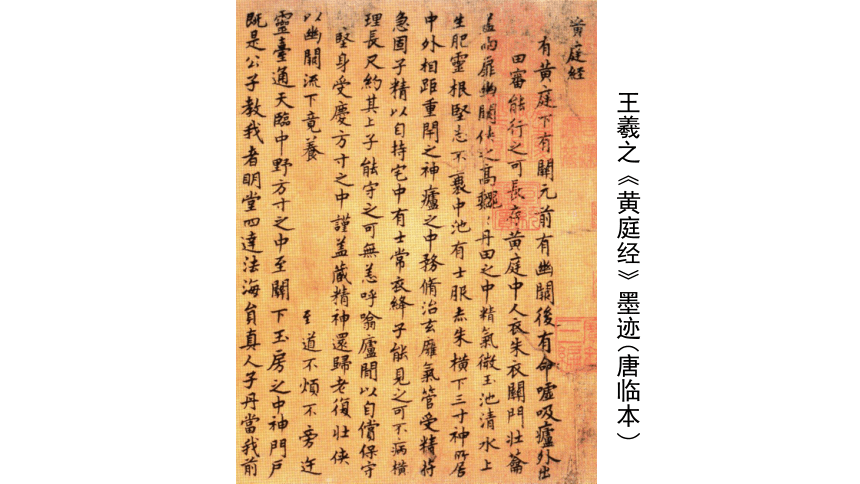 王羲之《黄庭经》墨迹(唐临本)
黄庭经
有黄庭下有關元前有幽關後有命嘘吸廬外出
田審能行之可長存黄庭中人衣朱衣關門壯蘥
盖兩扉幽關侠之高巍:丹田之中精氣微玉池清水上
生肥靈根堅志不衰中池有士服赤朱横下三寸神所居
中外相距重閇之神廬之中務脩治玄廱氣管受精符
急固子精以自持宅中有士常衣絳子能見之可不病横
理長尺約其上子能守之可無恙呼噏廬間以自償保守
堅身受慶方寸之中謹盖蔵精神還歸老復壯侠
以幽關流下竟養 至道不煩不旁迕
靈臺通天臨中野方寸之中至關下玉房之中神門戶
既是公子教我者明堂四達法海員真人子丹當我前